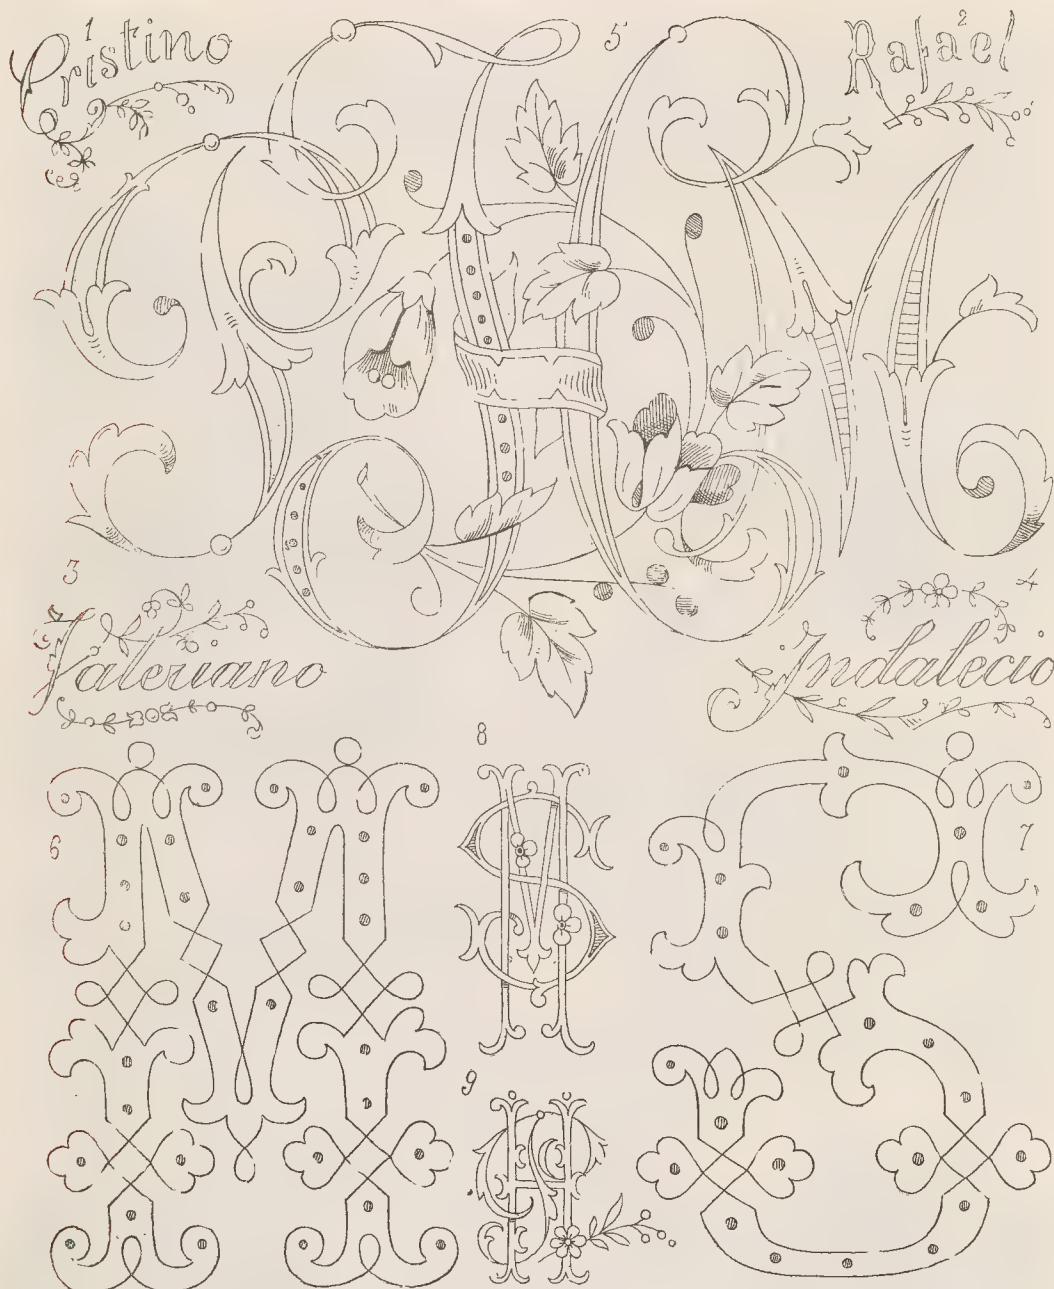 1
Cristino
5
2
Rafael
3
Valeriano
4
Indalecio
8
6
M
7
S
9